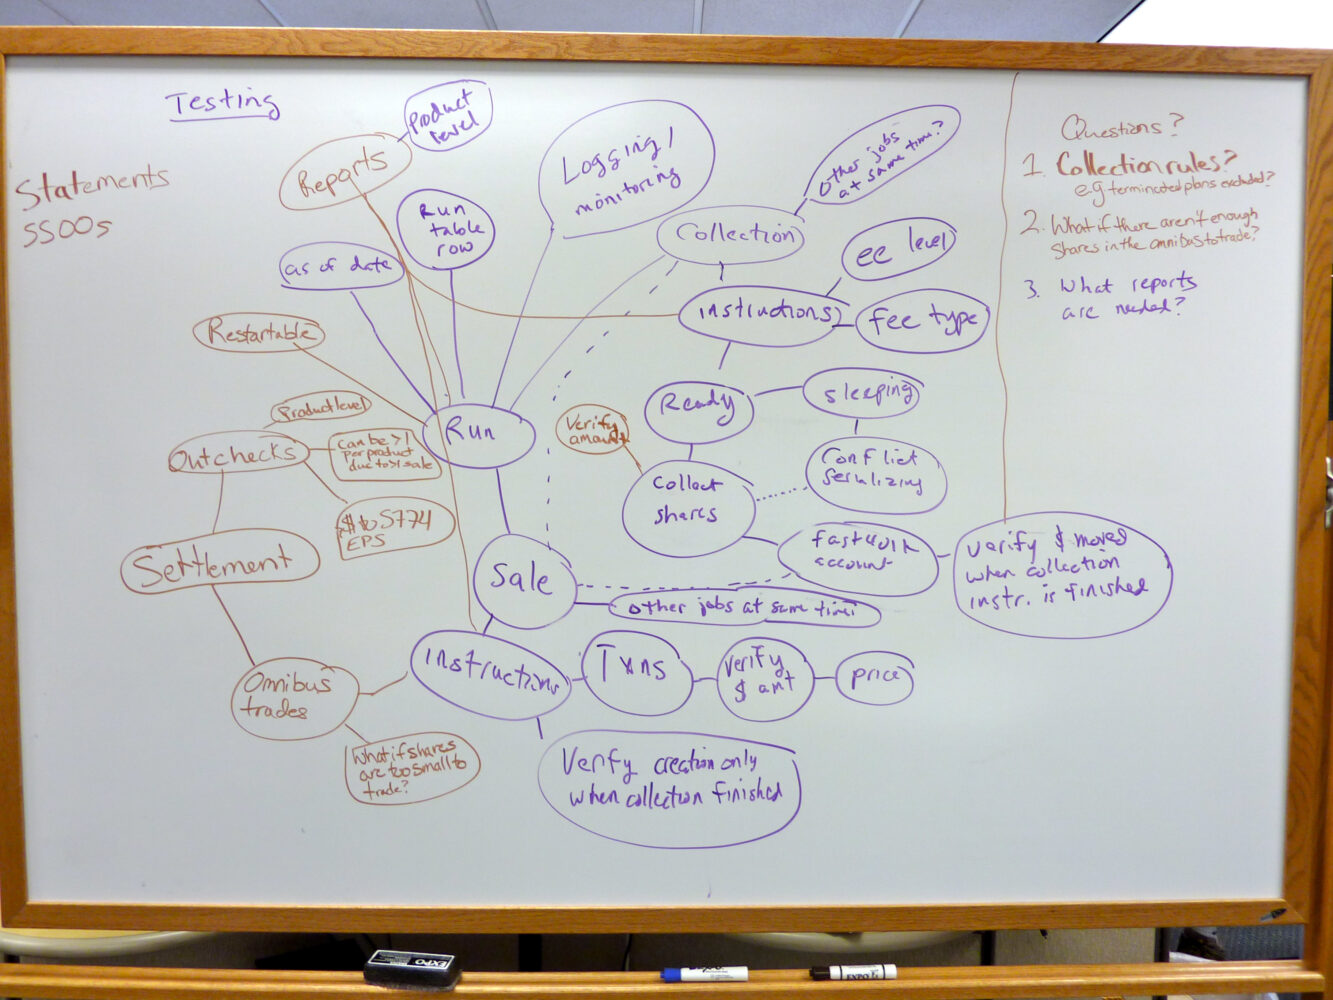 Testing
Statements
SSOOs
Reports
Product
level
Run
table
row
as of date
Logging/
monitoring
Collection
Other jobs
at same time?
ee level
instructions
fee type
Restartable
Product level
Outchecks
can be >1
per product
due to >1 sale
$ to 5774
EPS
Run
Verify
amount
Ready
sleeping
Collect
shares
Conflict
Serializing
Settlement
Sale
account
verify $ moved
when collection
instr. is finished
other jobs at same time
Omnibus
trades
instructions
Txns
verify
$ amt
price
What if shares
are too small to
trade?
Verify creation only
when collection finished
Questions?
1. Collection rules?
e.g terminated plans excluded?
2. What if there aren't enough
shares in the omnibus to trade?
3. What reports
are needed?
EXPO
EXPO